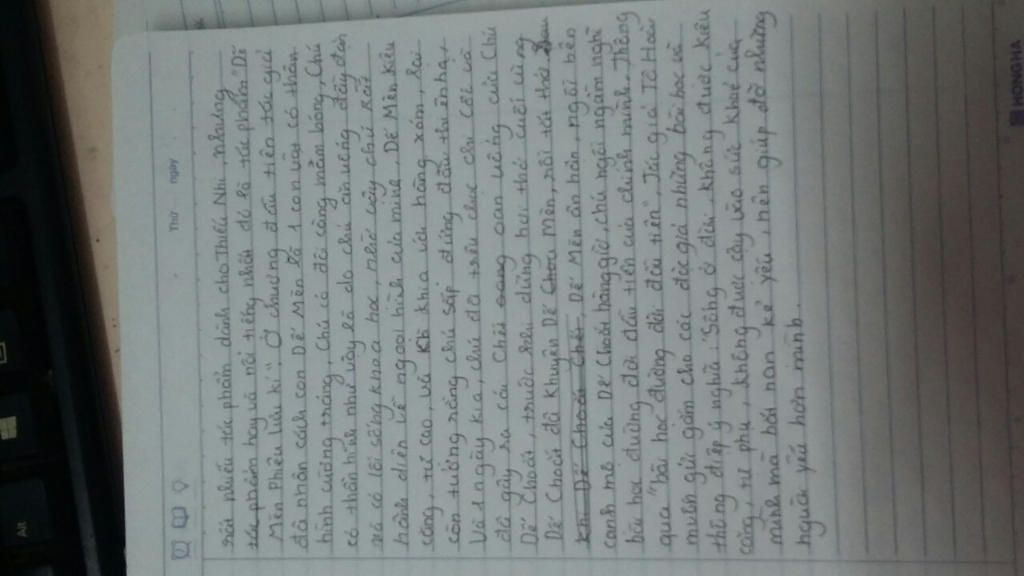 Thứ ngày
rất nhiều tác phẩm dành cho Thiếu Nhi, nhưng
tác phẩm hay và nổi tiếng nhất đó là tác phẩm "Dế
Mèn Phiêu lưu kí". Ở chương đầu tiên tác giả
đã nhân cách con Dế Mèn là 1 con vật có thân
hình cường tráng, chú có đôi càng mẫm bóng, Chú
có thân hình như vậy là do chú ăn uống đầy đặn
và có lối sống khoa học, nhờ vậy chú Rất
hãnh diện về ngoại hình của mình, Dế Mèn kiêu
căng, tự cao, và khi khia với hàng xóm, lại
còn tưởng rằng chú sắp đứng đầu thiên hạ,
Và 1 ngày kia, chú đã trêu chọc chị Cốc và
đã gây ra cái Chết oan uổng của Chú
Dế Choắt, trước khi dừng hơi thở cuối cùng
Dế Choắt đã khuyên Dế Mèn, rồi tắt thở
Dế Mèn ân hận, ngồi bên
cạnh mộ của Dế Choắt hàng giờ, chú ngồi ngẫm nghĩ
bài học đường đời đầu tiên của chính mình. Thông
qua "bài học đường đời đầu tiên", Tác giả Tô Hoài
muốn gửi gắm cho các độc giả những bài học và
thông điệp ý nghĩa "Sống ở đời, không được kiêu
căng, tự phụ, không được cậy vào sức khoẻ của
mình mà bắt nạt kẻ yếu, nên giúp đỡ những
người yếu hơn mình.
HONG HA